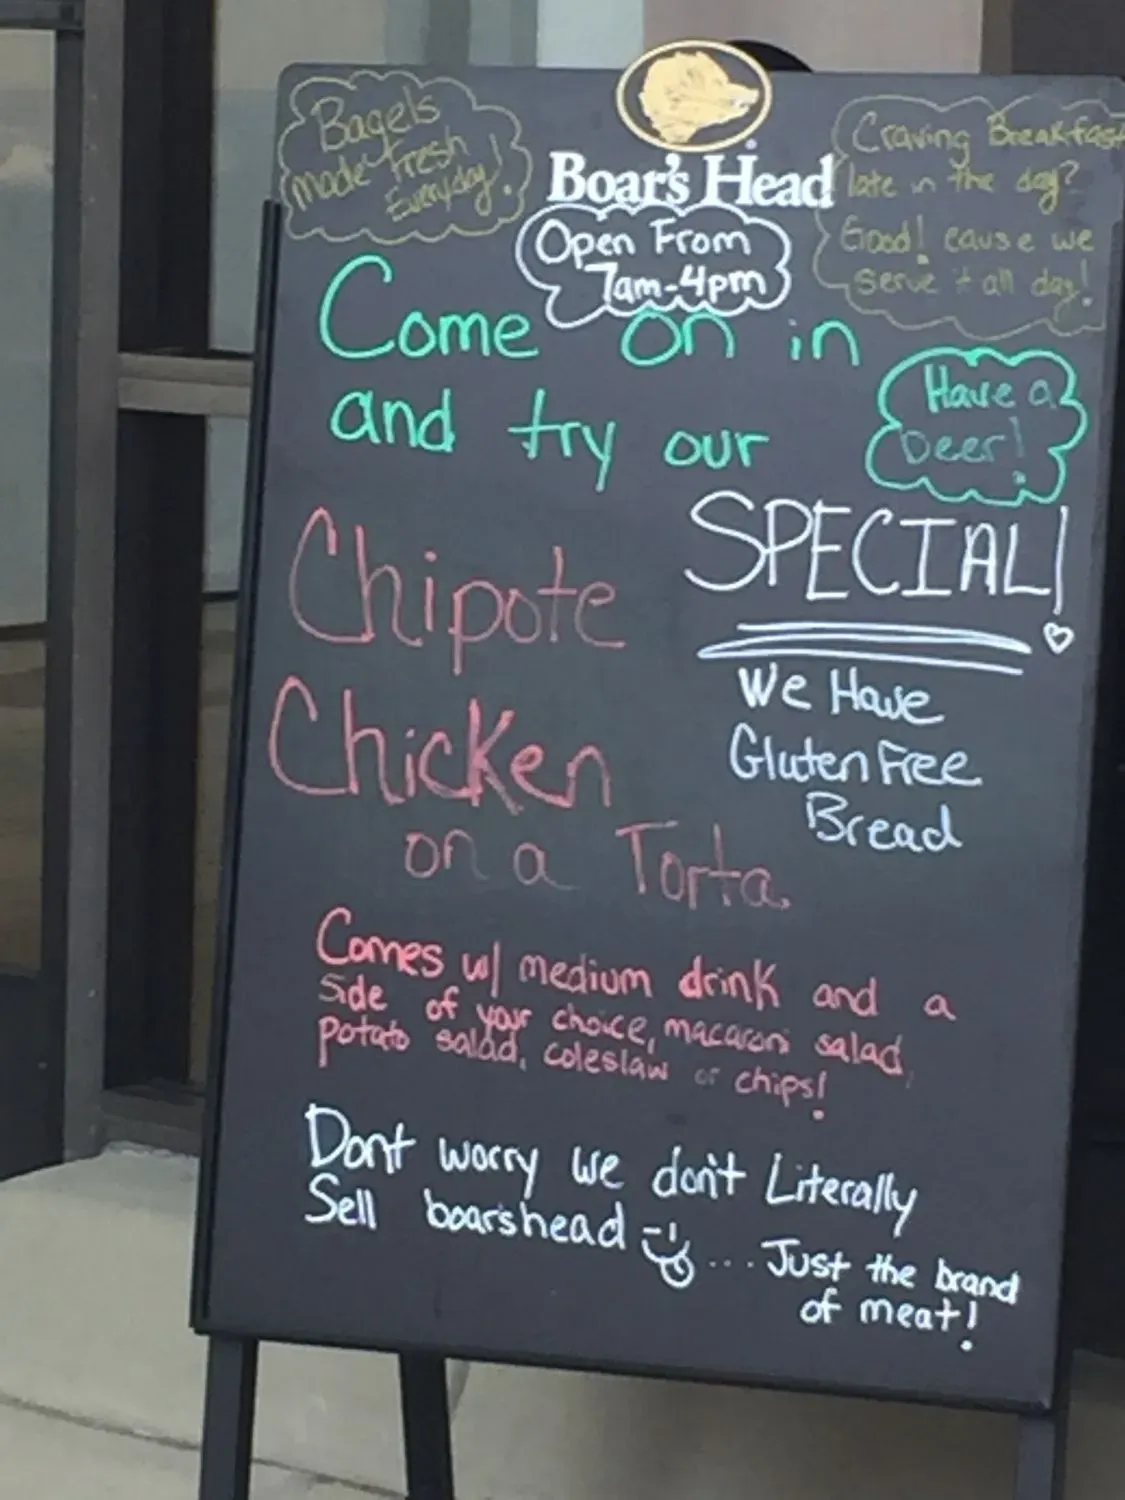 Bagels
made fresh
Everyday!
Boar's Head
Open From
7am-4pm
Craving Breakfast
late in the day?
Good! cause we
serve it all day!
Come on in
and try our
Have a
Beer!
SPECIAL!
Chipote
Chicken
on a Torta
We Have
Gluten Free
Bread
Comes w/ medium drink and a
side of your choice, macaroni salad,
potato salad, coleslaw or chips!
Dont worry we don't Literally
Sell boarshead ... Just the brand
of meat!